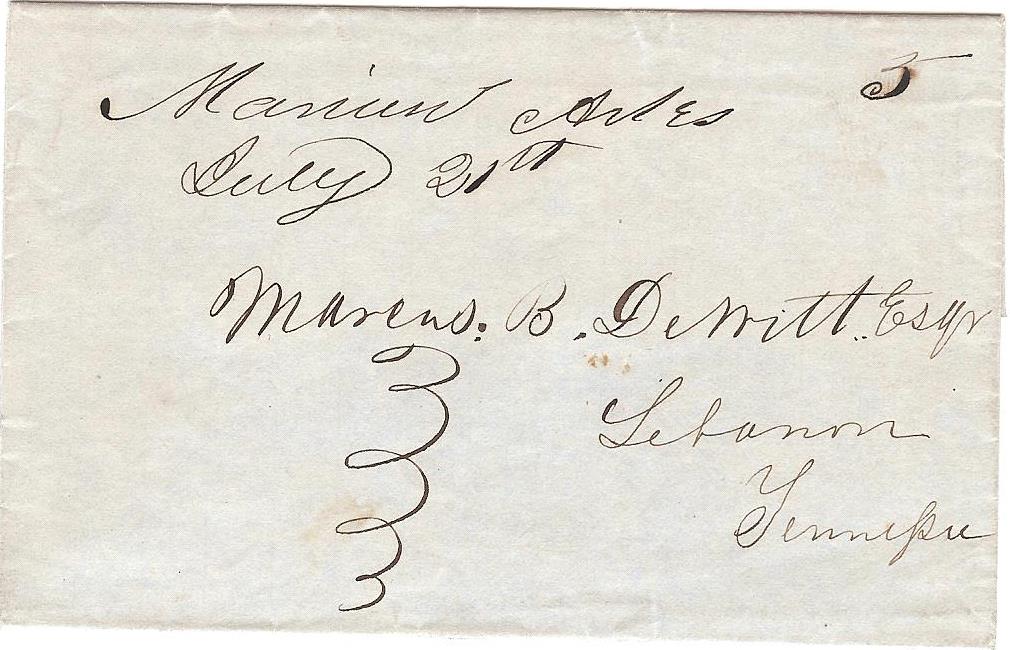 Marion Arks 5
July 21st
Marcus. B. DeWitt. Esqr
Lebanon
Tennessee